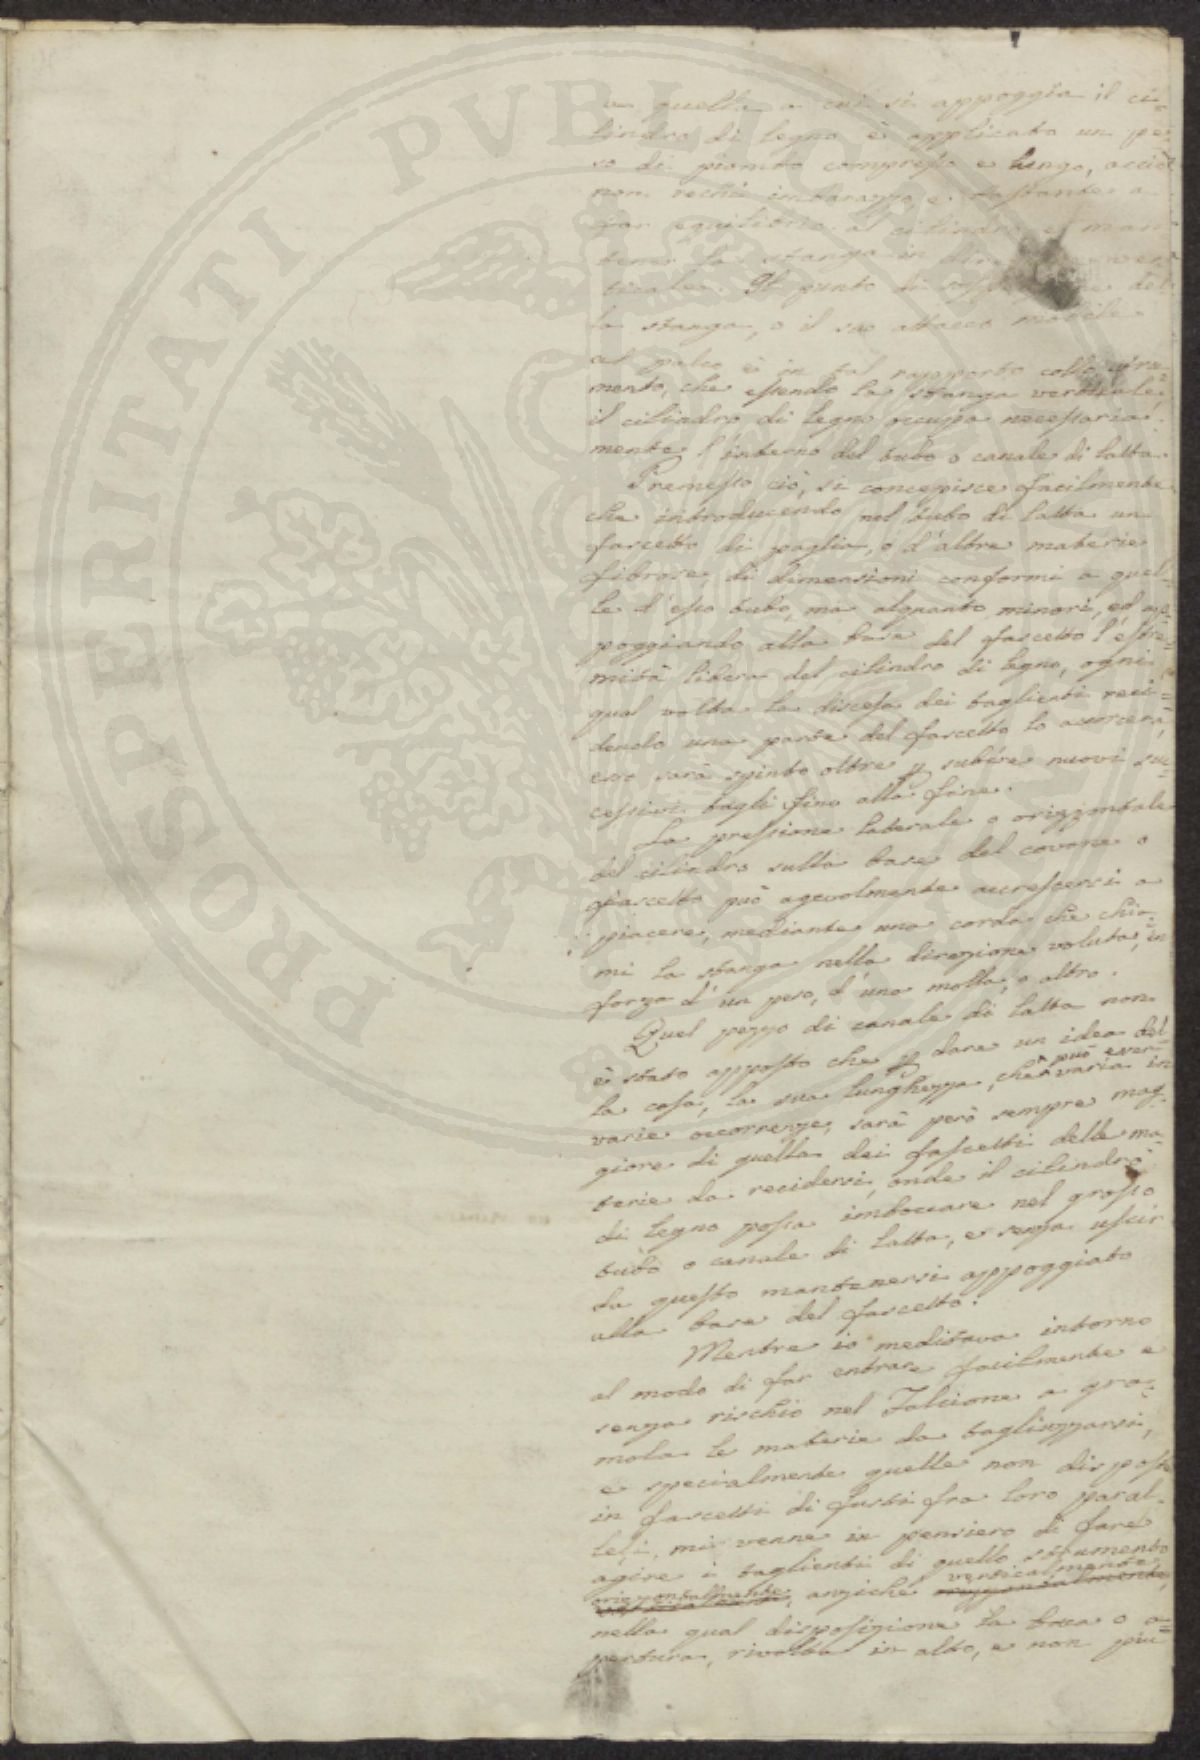 a quella a cui si appoggia il ci=
lindro di legno è applicato un pe=
so di piombo compresso e lungo, acciò
non rechi imbarazzo, e bastante a
far equilibrio al cilindro, e man
tener la stanga in ver
ticale. Il punto di del
la stanga, o il suo attacco mobile
al palco è in tal rapporto collo stru=
mento, che essendo la stanga verticale,
il cilindro di legno occupa necessaria=
mente l'interno del tubo o canale di latta.
Premesso ciò, si concepisce facilmente
che introducendo nel tubo di latta un
fascetto di paglia, o d'altre materie
fibrose, di dimensioni conformi a quel=
le d'esso tubo, ma alquanto minori, ed ap=
poggiando alla base del fascetto l'estre=
mità libera del cilindro di legno, ogni
qual volta la discesa dei taglienti reci=
dendo una parte del fascetto lo accorcerà,
esso sarà spinto oltre p subire nuovi suc=
cessivi tagli fino alla fine.
La pressione laterale o orizzontale
del cilindro sulla base del covone o
fascetto può agevolmente accrescersi a
piacere, mediante una corda che chia=
mi la stanga nella direzione voluta, in
forza d'un peso, d'una molla, o altro.
Quel pezzo di canale di latta non
è stato apposto che p dare un idea del=
la cosa, la sua lunghezza, che può esser
varia in
varie occorrenze, sarà però sempre mag=
giore di quella dei fascetti delle ma=
terie da recidersi, onde il cilindro
di legno possa imboccare nel grosso
tubo o canale di latta, e senza uscir
da questo mantenersi appoggiato
alla base del fascetto.
Mentre io meditava intorno
al modo di far entrare facilmente e
senza rischio nel Falcione a gra=
mola le materie da tagliuzzarsi,
e specialmente quelle non disposte
in fascetti di fusti fra loro paral=
leli, mi venne in pensiero di fare
agire i taglienti di quello strumento
orizzontalmente, anziché verticalmente
nella qual disposizione la bocca o a=
pertura, rivolta in alto, e non più